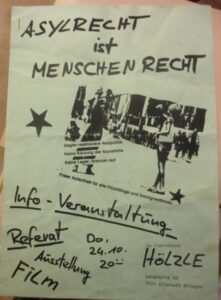 ASYLRECHT
ist
MENSCHEN RECHT
Gegen reaktionäre Asylpolitik
Keine Kürzung der Sozialhilfe
Keine Lager,
Freier Aufenthalt für alle Flüchtlinge und Immigrantinnen
Info-Veranstaltung
Referat
Do,
24.10.
20⁰⁰
Ausstellung
Film
im Jugendhaus
HÖLZLE